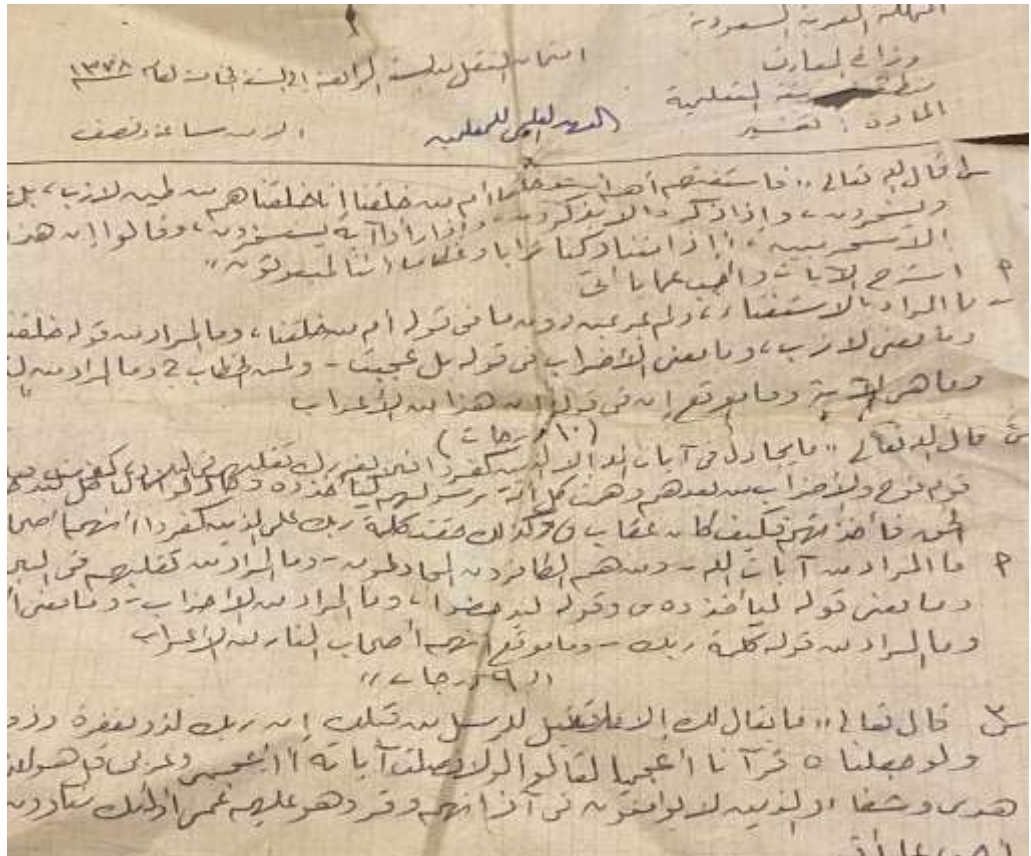 المملكة العربية السعودية
وزارة المعارف
امتحان النقل من السنة الرابعة إلى السنة الخامسة لعام ١٣٧٨
منطقة التعليمية
المادة : تفسير
المعهد العلمي للمعلمين
الزمن ساعة ونصف
س١ قال الله تعالى "فاستفتهم أهم أشد خلقا أم من خلقنا إنا خلقناهم من طين لازب، بل
ويسخرون، وإذا ذكروا لا يذكرون وإذا رأوا آية يستسخرون، وقالوا إن هذا
إلا سحر مبين، أإذا متنا وكنا ترابا وعظاما أئنا لمبعوثون"
اشرح الآيات وأجب عما يأتي
ما المراد بالاستفتاء، ولم عبر بمن دون ما في قوله أم من خلقنا، وما المراد من قوله خلقنا
وما معنى لازب، وما معنى الأضراب في قوله بل عجبت - ولمن الخطاب ؟ وما المراد من
وما هي الآية وما موقع إن في قوله إن هذا من الأعراب
(١٠ درجات)
س٢ قال الله تعالى "ما يجادل في آيات الله إلا الذين كفروا فلا يغررك تقلبهم في البلاد، كذبت قبلهم
قوم نوح والأحزاب من بعدهم وهمت كل أمة برسولهم ليأخذوه وجادلوا بالباطل ليدحضوا
الحق فأخذتهم فكيف كان عقاب وكذلك حقت كلمة ربك على الذين كفروا أنهم أصحاب
م ما المراد من آيات الله - ومن هم الكافرون المجادلون - وما المراد من تقلبهم في
وما معنى قوله ليأخذوه وقوله ليدحضوا، وما المراد من الأحزاب - وما معنى
وما المراد من قوله كلمة ربك - وما موقع أنهم أصحاب النار من الأعراب
"٩ درجات"
س٣ قال تعالى "ما يقال لك إلا ما قد قيل للرسل من قبلك إن ربك لذو مغفرة وذو
ولو جعلناه قرآنا أعجميا لقالوا لولا فصلت آياته أأعجمي وعربي قل هو للذين
هدى وشفاء والذين لا يؤمنون في آذانهم وقر وهو عليهم عمى أولئك ينادون